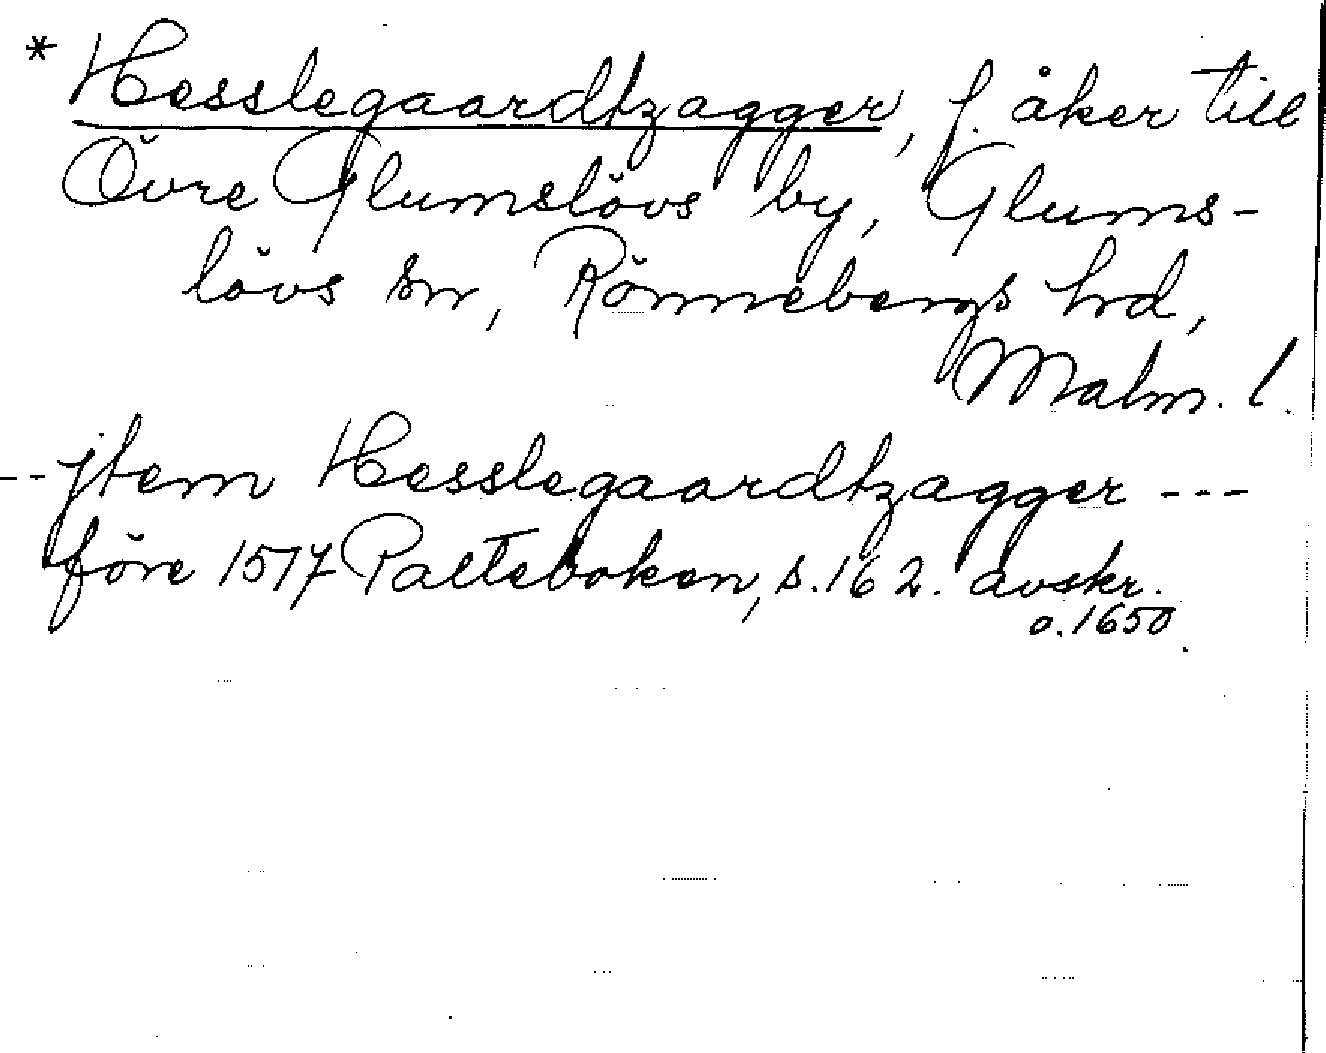 * Hesslegaardtzagger, f. åker till
Övre Glumslövs by, Glums-
lövs sn, Rönnebergs hrd,
Malm. l.
-- jtem Hesslegaardtzagger ---
före 1517 Palteboken, s. 162. avskr.
o. 1650.